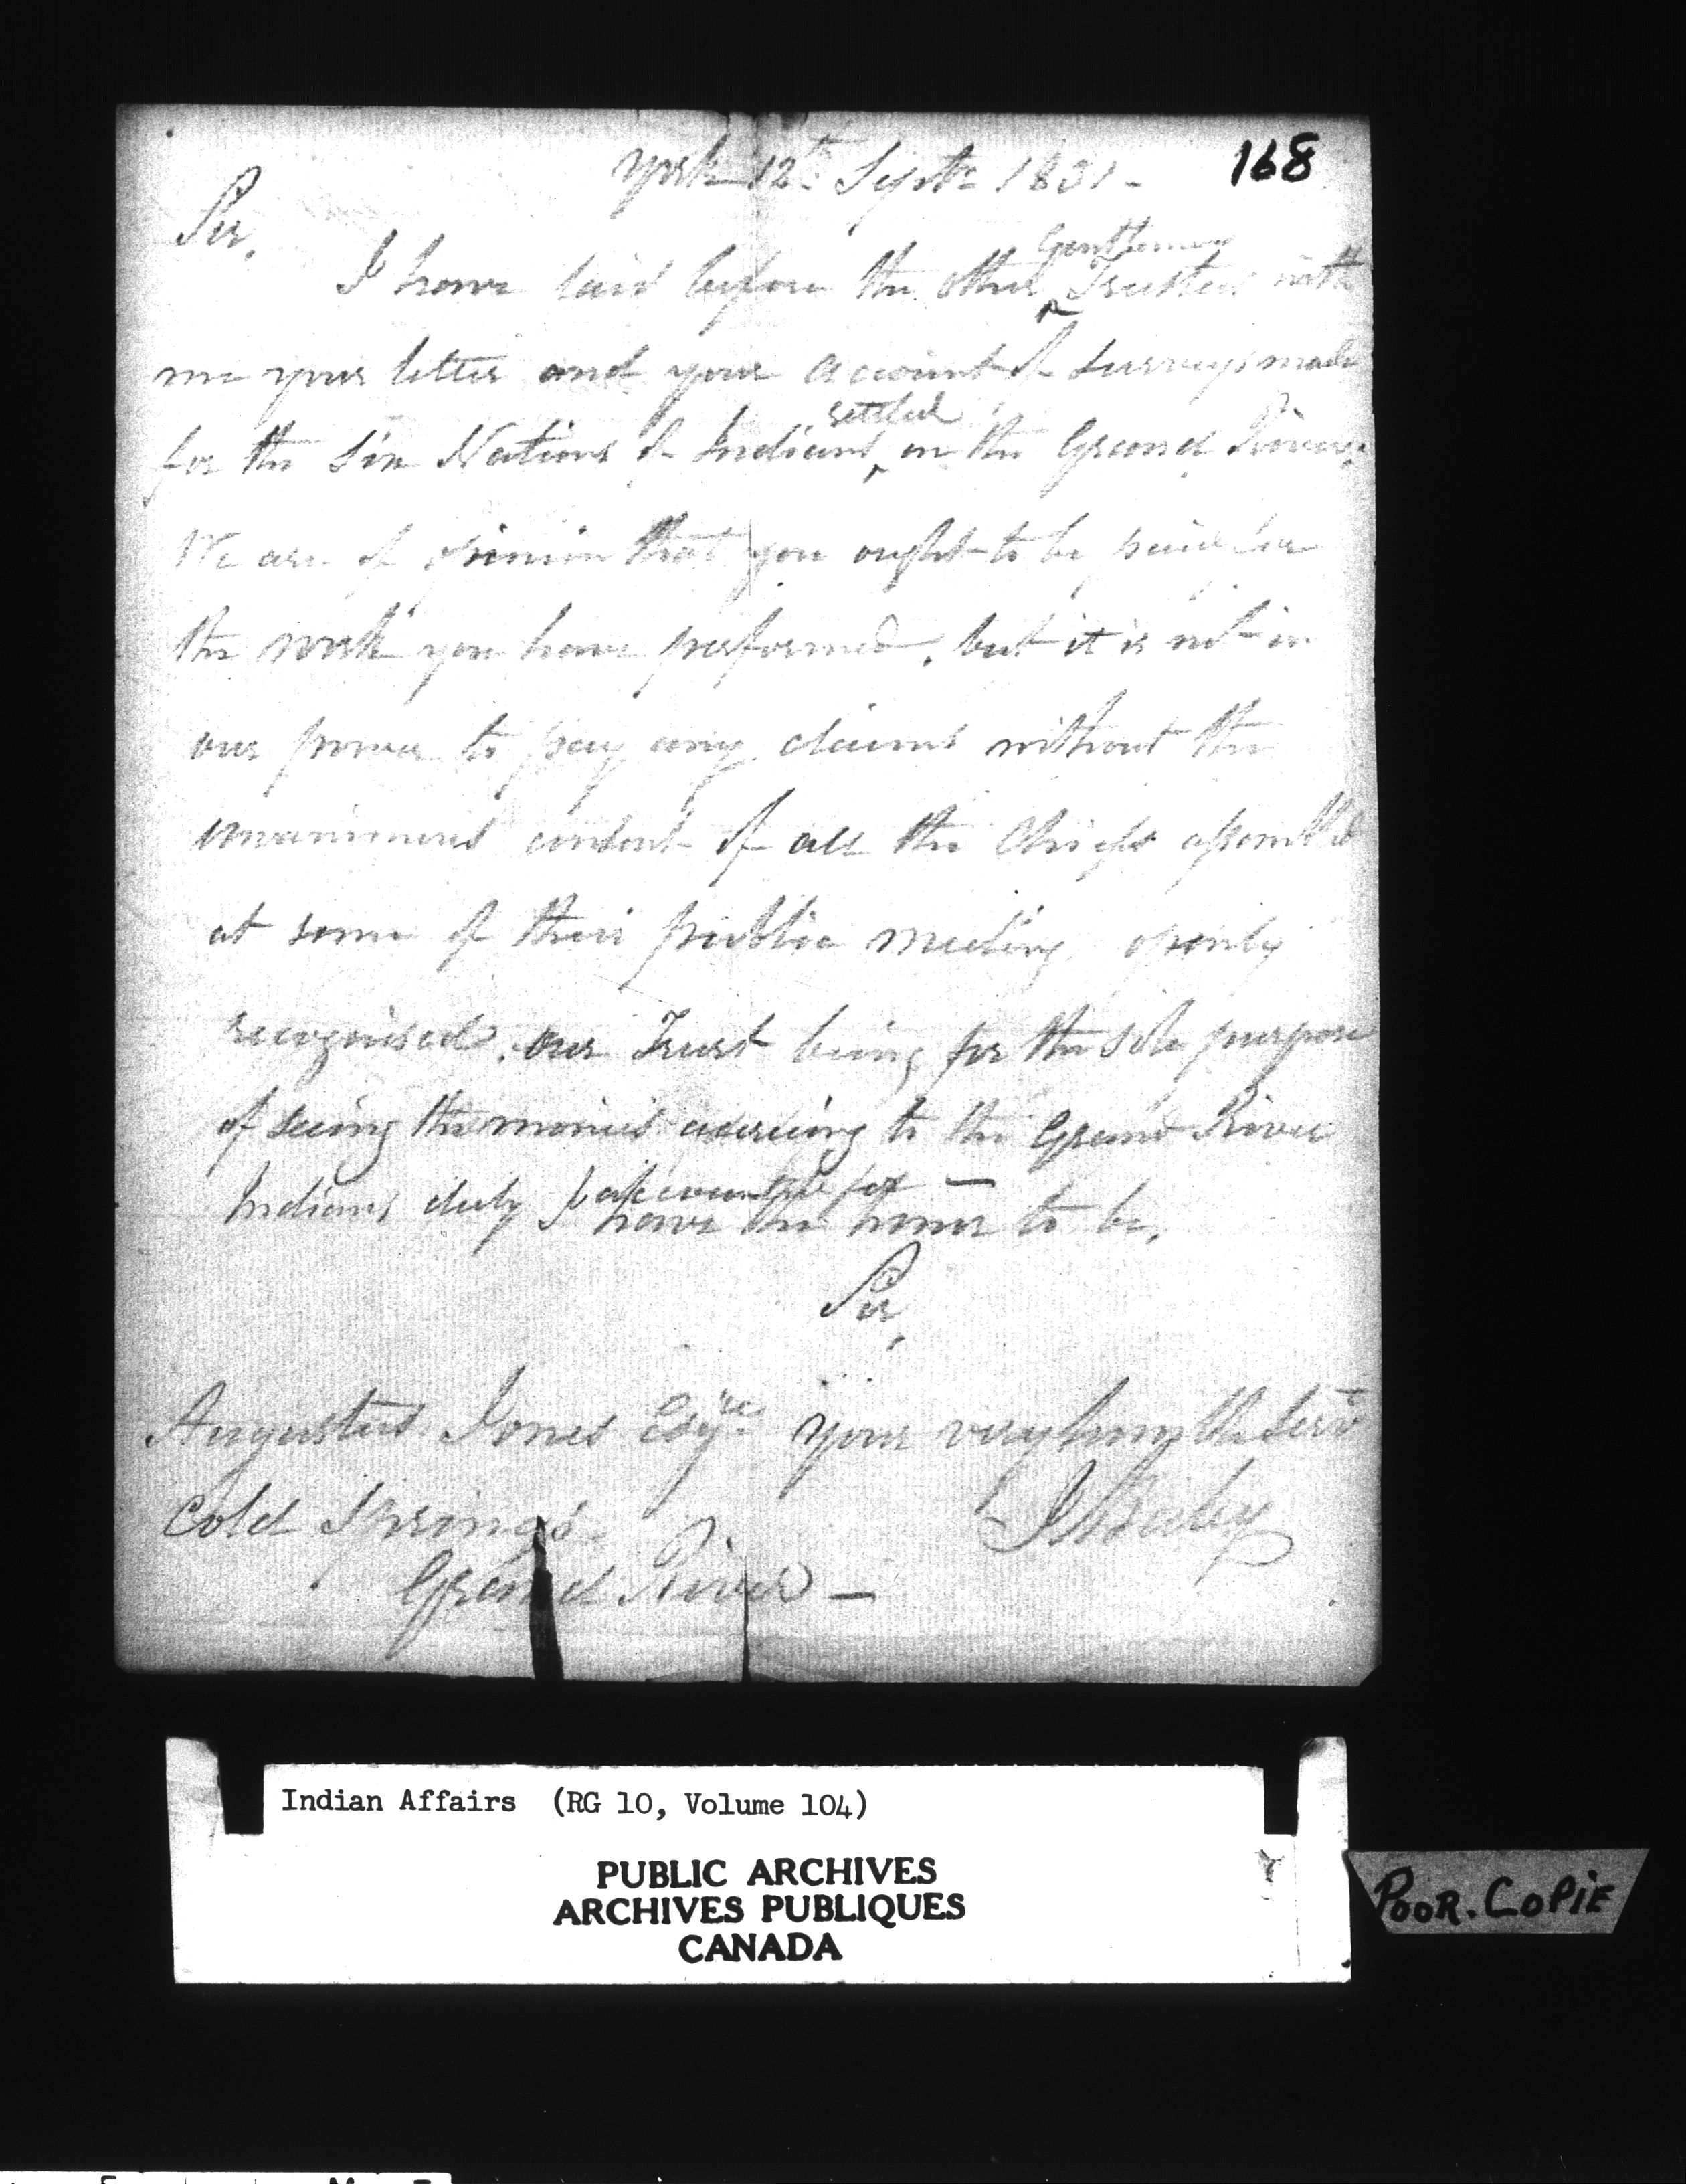 168
York 12th Septr 1831 -
Sir,
Gentlemen
I have laid before the other ^ Trustees with
me your letter and your account of Surveys made
settled
for the Six Nations of Indians ^ on the Grand River.
We are of opinion that you ought to be paid for
the work you have performed, but it is not in
our power to pay any claims without the
unanimous consent of all the Chiefs assembled
at some of their public meeting openly
recognised, our Trust being for the sole purpose
of seeing the monies accruing to the Grand River
accounted for —
Indians duly I have the honor to be,
Sir,
Augustus Jones Esqre your very humble Servt
Cold Springs J Baby
Grand River —
Indian Affairs (RG 10, Volume 104)
PUBLIC ARCHIVES
ARCHIVES PUBLIQUES
CANADA
POOR. COPIE